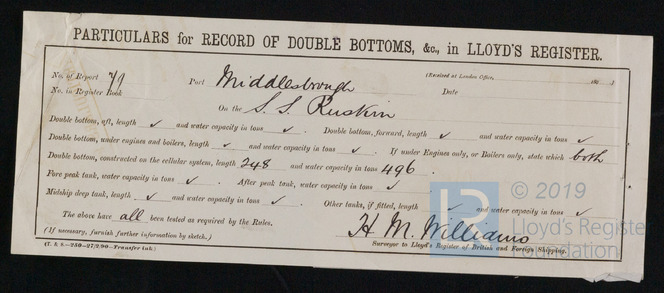 PARTICULARS for RECORD OF DOUBLE BOTTOMS, &c., in LLOYD'S REGISTER.
No. of Report 79 Port Middlesbrough (Received at London Office, 189 )
No. in Register Book Date
On the S. S. Ruskin
Double bottom, aft, length ✓ and water capacity in tons ✓. Double bottom, forward, length ✓ and water capacity in tons ✓
Double bottom, under engines and boilers, length ✓ and water capacity in tons ✓. If under Engines only, or Boilers only, state which both
Double bottom, constructed on the cellular system, length 248 and water capacity in tons 496.
Fore peak tank, water capacity in tons ✓. After peak tank, water capacity in tons ✓
Midship deep tank, length ✓ and water capacity in tons ✓. Other tanks, if fitted, length ✓ and water capacity in tons ✓
The above have all been tested as required by the Rules.
(If necessary, furnish further information by sketch.)
H. M. Williams
Surveyor to Lloyd's Register of British and Foreign Shipping.
(T. & S.—250—27/2/90—Transfer ink)
LR © 2019
Lloyd's Register
Foundation